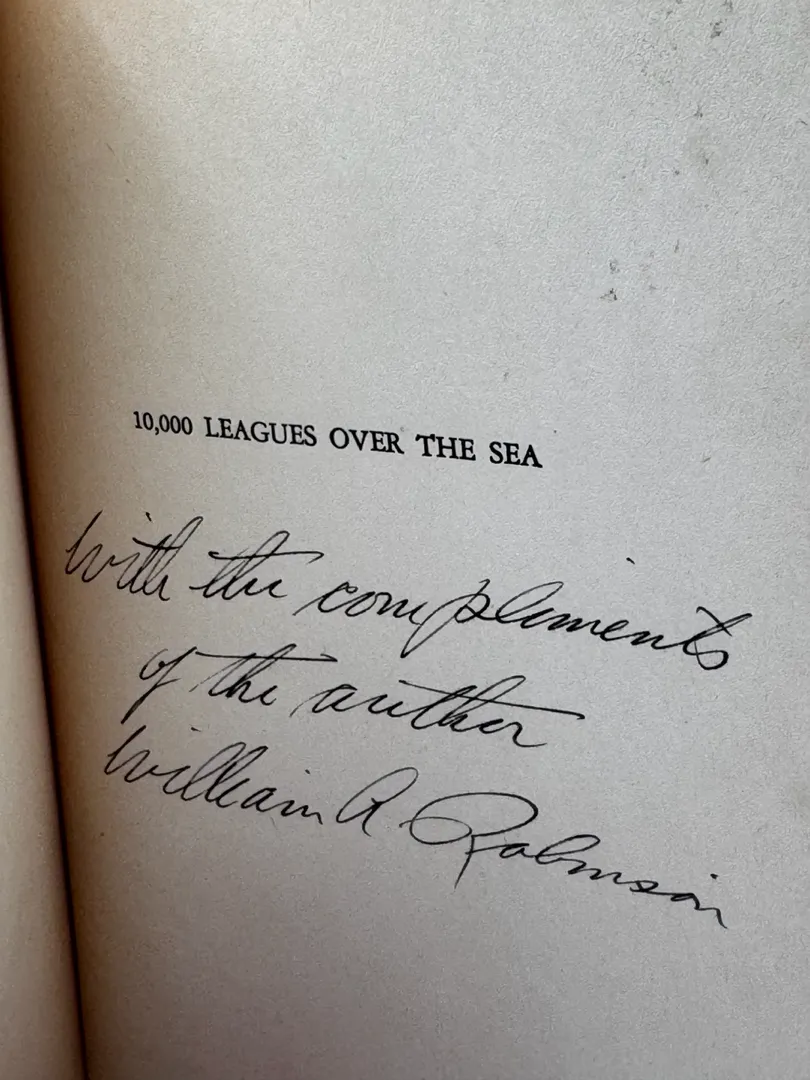 10,000 LEAGUES OVER THE SEA
With the compliments
of the author
William A. Robinson